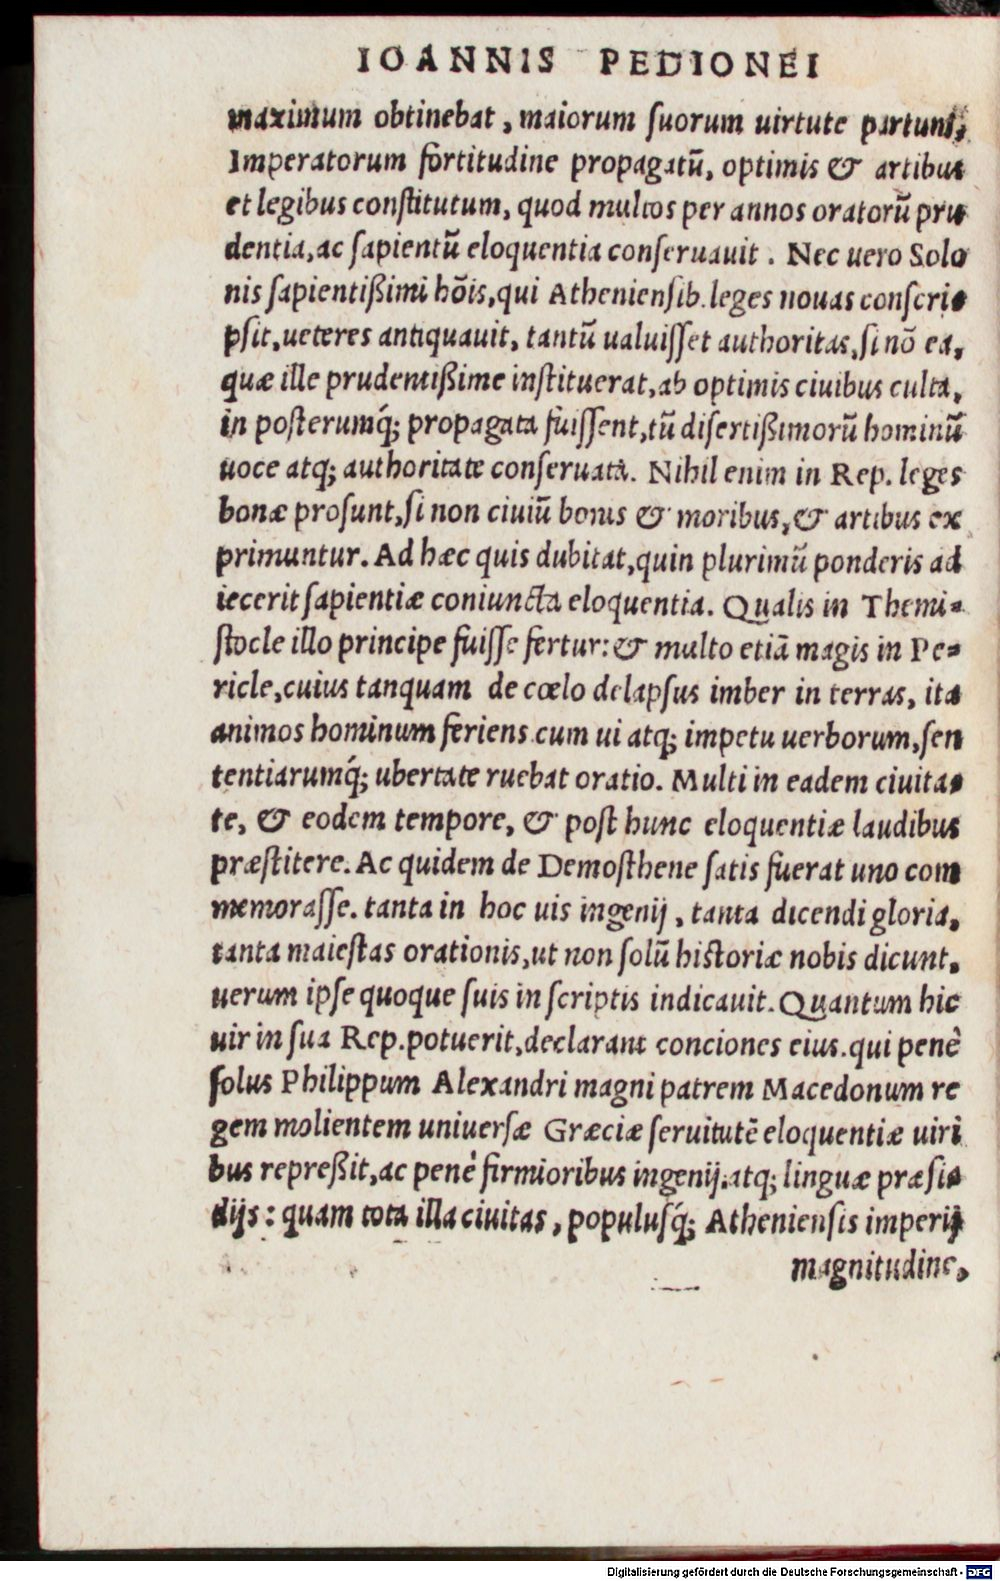 IOANNIS PEDIONEI
maximum obtinebat, maiorum suorum uirtute partum,
Imperatorum fortitudine propagatũ, optimis & artibus
et legibus constitutum, quod multos per annos oratorũ pru
dentia, ac sapientũ eloquentia conseruauit. Nec uero Solo
nis sapientißimi hõis, qui Atheniensib. leges nouas conscri-
psit, ueteres antiquauit, tantũ ualuisset authoritas, si nõ ea,
quæ ille prudentißime instituerat, ab optimis ciuibus culta,
in posterumq́; propagata fuissent, tũ disertißimorũ hominũ
uoce atq; authoritate conseruata. Nihil enim in Rep. leges
bonæ prosunt, si non ciuiũ bonis & moribus, & artibus ex
primuntur. Ad hæc quis dubitat, quin plurimũ ponderis ad
iecerit sapientiæ coniuncta eloquentia. Qualis in Themi-
stocle illo principe fuisse fertur: & multo etiã magis in Pe-
ricle, cuius tanquam de cœlo delapsus imber in terras, ita
animos hominum feriens cum ui atq; impetu uerborum, sen
tentiarumq́; ubertate ruebat oratio. Multi in eadem ciuita-
te, & eodem tempore, & post hunc eloquentiæ laudibus
præstitere. Ac quidem de Demosthene satis fuerat uno com
memorasse. tanta in hoc uis ingenij, tanta dicendi gloria,
tanta maiestas orationis, ut non solũ historiæ nobis dicunt,
uerum ipse quoque suis in scriptis indicauit. Quantum hic
uir in sua Rep. potuerit, declarant conciones eius. qui penè
solus Philippum Alexandri magni patrem Macedonum re
gem molientem uniuersæ Græciæ seruitutẽ eloquentiæ uiri
bus repreßit, ac penè firmioribus ingenij, atq; linguæ præsi-
dijs: quam tota illa ciuitas, populusq́; Atheniensis imperij
magnitudine,
Digitalisierung gefördert durch die Deutsche Forschungsgemeinschaft - DFG